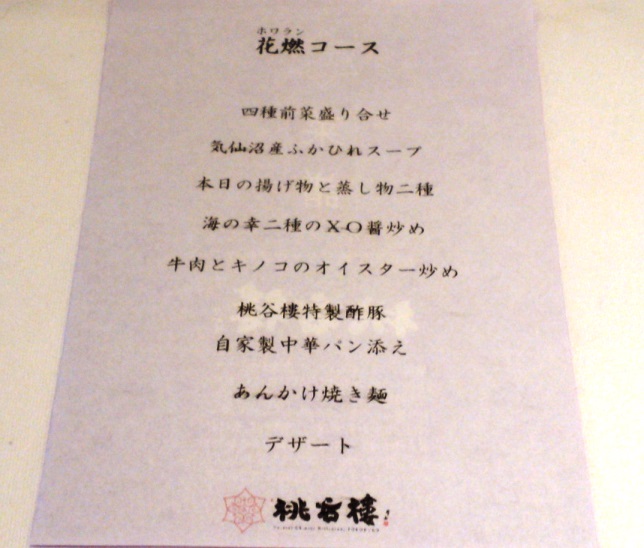 ホワラン
花燃コース
四種前菜盛り合せ
気仙沼産ふかひれスープ
本日の揚げ物と蒸し物二種
海の幸二種のX-O醤炒め
牛肉とキノコのオイスター炒め
桃谷樓特製酢豚
自家製中華パン添え
あんかけ焼き麺
デザート
桃谷樓